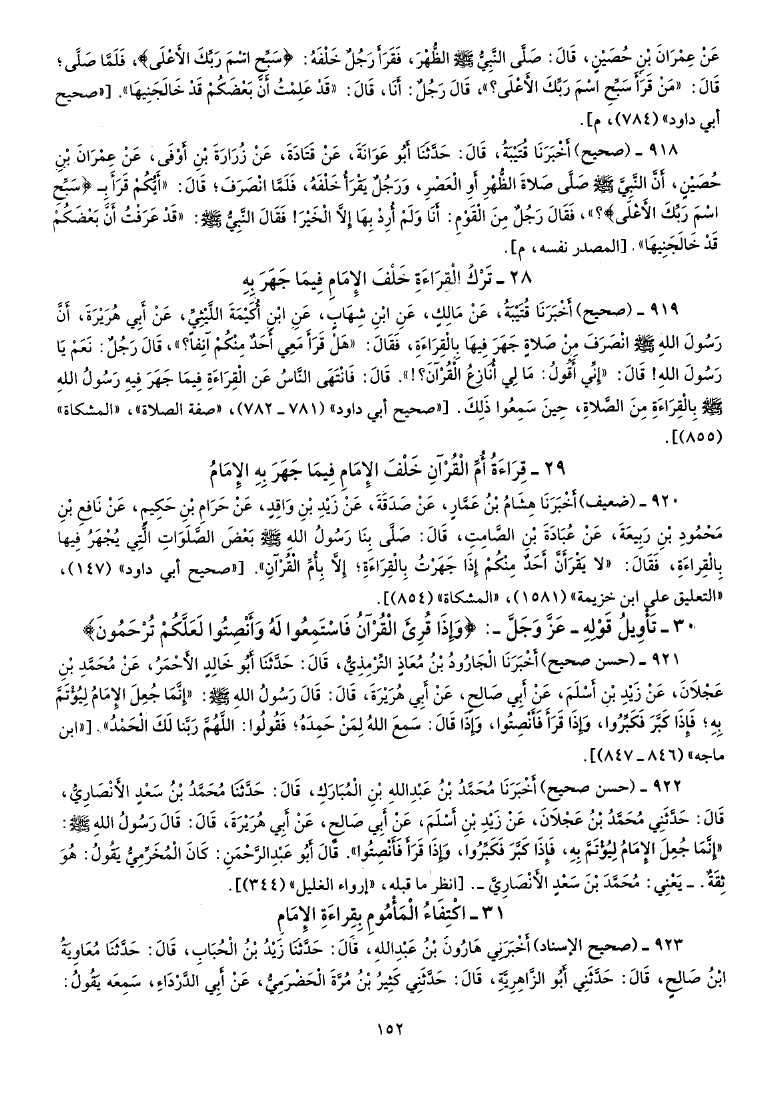 عَنْ عِمْرَانَ بْنِ حُصَيْنٍ، قَالَ: صَلَّى النَّبِيُّ ﷺ الظُّهْرَ، فَقَرَأَ رَجُلٌ خَلْفَهُ: ﴿سَبِّحِ اسْمَ رَبِّكَ الأَعْلَى﴾، فَلَمَّا صَلَّى؛
قَالَ: «مَنْ قَرَأَ سَبِّحِ اسْمَ رَبِّكَ الأَعْلَى؟»، قَالَ رَجُلٌ: أَنَا، قَالَ: «قَدْ عَلِمْتُ أَنَّ بَعْضَكُمْ قَدْ خَالَجَنِيهَا». [«صحيح
أبي داود» (٧٨٤)، م].
٩١٨ ـ (صحيح) أَخْبَرَنَا قُتَيْبَةُ، قَالَ: حَدَّثَنَا أَبُو عَوَانَةَ، عَنْ قَتَادَةَ، عَنْ زُرَارَةَ بْنِ أَوْفَى، عَنْ عِمْرَانَ بْنِ
حُصَيْنٍ، أَنَّ النَّبِيَّ ﷺ صَلَّى صَلاةَ الظُّهْرِ أَوِ الْعَصْرِ، وَرَجُلٌ يَقْرَأُ خَلْفَهُ، فَلَمَّا انْصَرَفَ؛ قَالَ: «أَيُّكُمْ قَرَأَ بِـ ﴿سَبِّحِ
اسْمَ رَبِّكَ الأَعْلَى﴾؟»، فَقَالَ رَجُلٌ مِنَ الْقَوْمِ: أَنَا وَلَمْ أُرِدْ بِهَا إِلَّا الْخَيْرَ! فَقَالَ النَّبِيُّ ﷺ: «قَدْ عَرَفْتُ أَنَّ بَعْضَكُمْ
قَدْ خَالَجَنِيهَا». [المصدر نفسه، م].
٢٨ ـ تَرْكُ الْقِرَاءَةِ خَلْفَ الإِمَامِ فِيمَا جَهَرَ بِهِ
٩١٩ ـ (صحيح) أَخْبَرَنَا قُتَيْبَةُ، عَنْ مَالِكٍ، عَنِ ابْنِ شِهَابٍ، عَنِ ابْنِ أُكَيْمَةَ اللَّيْثِيِّ، عَنْ أَبِي هُرَيْرَةَ، أَنَّ
رَسُولَ اللهِ ﷺ انْصَرَفَ مِنْ صَلاةٍ جَهَرَ فِيهَا بِالْقِرَاءَةِ، فَقَالَ: «هَلْ قَرَأَ مَعِي أَحَدٌ مِنْكُمْ آنِفاً؟»، قَالَ رَجُلٌ: نَعَمْ يَا
رَسُولَ اللهِ! قَالَ: «إِنِّي أَقُولُ: مَا لِي أُنَازَعُ الْقُرْآنَ؟!». قَالَ: فَانْتَهَى النَّاسُ عَنِ الْقِرَاءَةِ فِيمَا جَهَرَ فِيهِ رَسُولُ اللهِ
ﷺ بِالْقِرَاءَةِ مِنَ الصَّلَاةِ، حِينَ سَمِعُوا ذَلِكَ. [«صحيح أبي داود» (٧٨١ ـ ٧٨٢)، «صفة الصلاة»، «المشكاة»
(٨٥٥)].
٢٩ ـ قِرَاءَةُ أُمِّ الْقُرْآنِ خَلْفَ الإِمَامِ فِيمَا جَهَرَ بِهِ الإِمَامُ
٩٢٠ ـ (ضعيف) أَخْبَرَنَا هِشَامُ بْنُ عَمَّارٍ، عَنْ صَدَقَةَ، عَنْ زَيْدِ بْنِ وَاقِدٍ، عَنْ حَرَامِ بْنِ حَكِيمٍ، عَنْ نَافِعِ بْنِ
مَحْمُودِ بْنِ رَبِيعَةَ، عَنْ عُبَادَةَ بْنِ الصَّامِتِ، قَالَ: صَلَّى بِنَا رَسُولُ اللهِ ﷺ بَعْضَ الصَّلَوَاتِ الَّتِي يُجْهَرُ فِيهَا
بِالْقِرَاءَةِ، فَقَالَ: «لا يَقْرَأَنَّ أَحَدٌ مِنْكُمْ إِذَا جَهَرْتُ بِالْقِرَاءَةِ؛ إِلَّا بِأُمِّ الْقُرْآنِ». [«صحيح أبي داود» (١٤٧)،
«التعليق على ابن خزيمة» (١٥٨١)، «المشكاة» (٨٥٤)].
٣٠ ـ تَأْوِيلُ قَوْلِهِ ـ عَزَّ وَجَلَّ ـ: ﴿وَإِذَا قُرِئَ الْقُرْآنُ فَاسْتَمِعُوا لَهُ وَأَنْصِتُوا لَعَلَّكُمْ تُرْحَمُونَ﴾
٩٢١ ـ (حسن صحيح) أَخْبَرَنَا الْجَارُودُ بْنُ مُعَاذٍ التِّرْمِذِيُّ، قَالَ: حَدَّثَنَا أَبُو خَالِدٍ الأَحْمَرُ، عَنْ مُحَمَّدِ بْنِ
عَجْلَانَ، عَنْ زَيْدِ بْنِ أَسْلَمَ، عَنْ أَبِي صَالِحٍ، عَنْ أَبِي هُرَيْرَةَ، قَالَ: قَالَ رَسُولُ اللهِ ﷺ: «إِنَّمَا جُعِلَ الإِمَامُ لِيُؤْتَمَّ
بِهِ؛ فَإِذَا كَبَّرَ فَكَبِّرُوا، وَإِذَا قَرَأَ فَأَنْصِتُوا، وَإِذَا قَالَ: سَمِعَ اللهُ لِمَنْ حَمِدَهُ؛ فَقُولُوا: اللَّهُمَّ رَبَّنَا لَكَ الْحَمْدُ». [«ابن
ماجه» (٨٤٦ ـ ٨٤٧)].
٩٢٢ ـ (حسن صحيح) أَخْبَرَنَا مُحَمَّدُ بْنُ عَبْدِاللهِ بْنِ الْمُبَارَكِ، قَالَ: حَدَّثَنَا مُحَمَّدُ بْنُ سَعْدٍ الأَنْصَارِيُّ،
قَالَ: حَدَّثَنِي مُحَمَّدُ بْنُ عَجْلَانَ، عَنْ زَيْدِ بْنِ أَسْلَمَ، عَنْ أَبِي صَالِحٍ، عَنْ أَبِي هُرَيْرَةَ، قَالَ: قَالَ رَسُولُ اللهِ ﷺ:
«إِنَّمَا جُعِلَ الإِمَامُ لِيُؤْتَمَّ بِهِ، فَإِذَا كَبَّرَ فَكَبِّرُوا، وَإِذَا قَرَأَ فَأَنْصِتُوا». قَالَ أَبُو عَبْدِالرَّحْمَنِ: كَانَ الْمُخَرِّمِيُّ يَقُولُ: هُوَ
ثِقَةٌ. ـ يَعْنِي: مُحَمَّدَ بْنَ سَعْدٍ الأَنْصَارِيَّ ـ. [انظر ما قبله، «إرواء الغليل» (٣٤٤)].
٣١ ـ اكْتِفَاءُ الْمَأْمُومِ بِقِرَاءَةِ الإِمَامِ
٩٢٣ ـ (صحيح الإسناد) أَخْبَرَنِي هَارُونُ بْنُ عَبْدِاللهِ، قَالَ: حَدَّثَنَا زَيْدُ بْنُ الْحُبَابِ، قَالَ: حَدَّثَنَا مُعَاوِيَةُ
ابْنُ صَالِحٍ، قَالَ: حَدَّثَنِي أَبُو الزَّاهِرِيَّةِ، قَالَ: حَدَّثَنِي كَثِيرُ بْنُ مُرَّةَ الْحَضْرَمِيُّ، عَنْ أَبِي الدَّرْدَاءِ، سَمِعَه يَقُولُ:
١٥٢